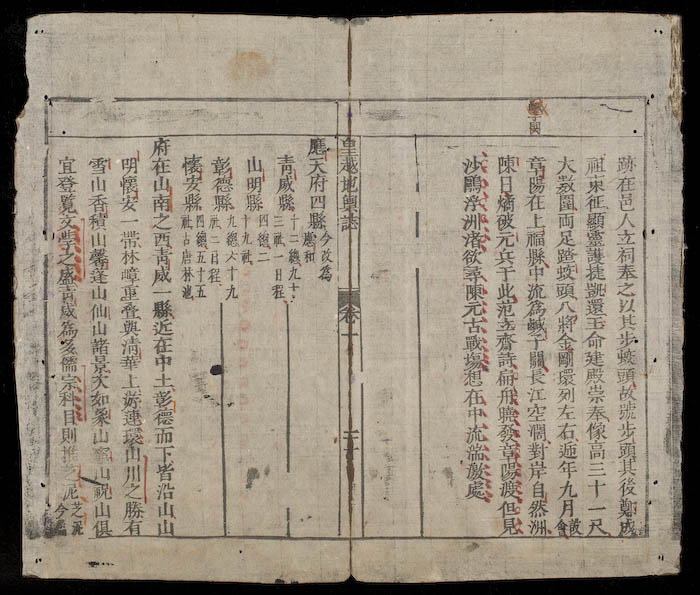 跡在邑人立祠奉之以其步蛟頭故號步頭其後鄭成
祖東征顯靈護捷凱還王命建殿崇奉像高三十一尺
大数圍両足踏蛟頭八將金剛環列左右逓年九月設會
章陽在上福縣中流為鹹子關長江空濶對岸自然洲
陳日燏破元兵于此范立齋詩扁舟曉發章陽渡但見
沙鷗浮洲渚欲尋陳元古戰塲想在中流湍激處
皇越地輿誌 卷一
應天府四縣今改為應和
青威縣十二總九十三社一日程
山明縣四總二十九社
彰德縣九總六十九社二日程
懷安縣四總五十五社古唐林地
府在山南之西青威一縣近在中土彰德而下皆沿山山
明懷安一帶林嶂重疊與清華上游連環山川之勝有
雪山香積山馨蓬山仙山諸景大如象山山祝山俱
宜登覽文學之盛青威為多儒宗科目則推芝泥芝泥今